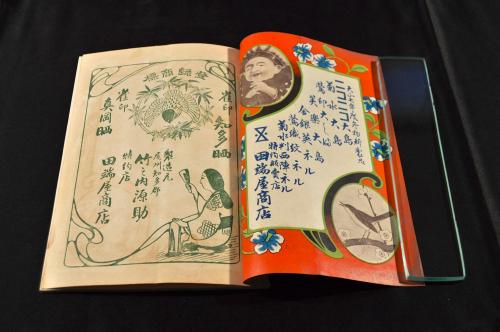 登録商標
雀印
知多晒
製造元
尾州知多郡
竹之内源助
特約店
田端屋商店
雀印
真岡晒
ニコニコ大島
菊水大島
鷲印大島
笑楽大島
金銀英ネル
鷲綾紋ネル
菊水判西陣ネル
特約販売店
田端屋商店